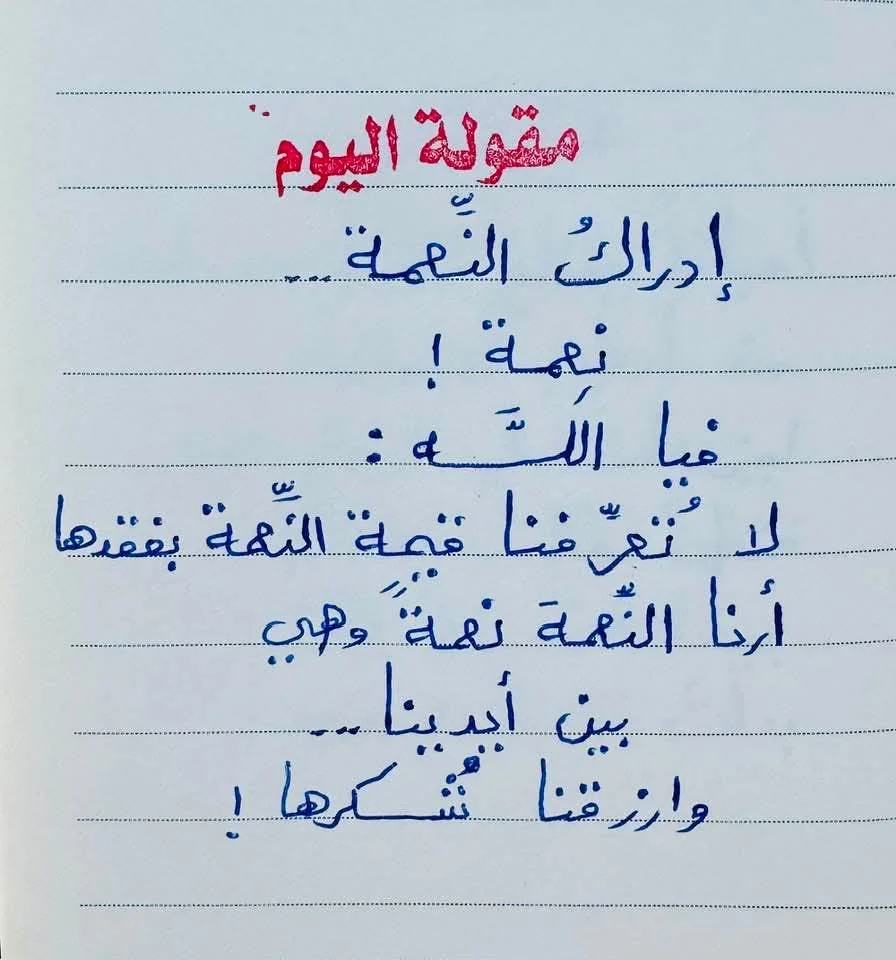 مقولة اليوم
إدراكُ النِّعمة...
نِعمة !
فيا اللَّه :
لا تُعرِّفنا قيمة النِّعمة بفقدها
أرنا النِّعمَة نعمةً وهي
بين أيدينا...
وارزقنا شُكرها !